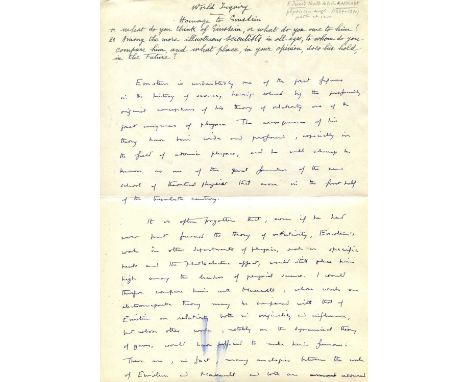 World Inquiry
Homage to Einstein
What do you think of Einstein, or what do you owe to him?
Among the more illustrious scientists in all ages, to whom do you
compare him and what place, in your opinion, does he hold,
in the Future?
Einstein is undoubtedly one of the great figures
in the history of science, having solved by the profoundly
original conceptions of his theory of relativity one of the
great enigmas of physics. The consequences of his
theory have been wide and profound, especially in
the field of atomic physics, and he will always be
known as one of the great founders of the new
school of theoretical physics that arose in the first half
of the twentieth century.
It is often forgotten that, even if he had
never put forward the theory of relativity, Einstein's
work in other departments of physics, such as specific
heats and the photoelectric effect, would still place him
high among the leaders of physical science. I would
therefore compare him with Maxwell, whose work on
electromagnetic theory may be compared with that of
Einstein on relativity both in originality and influence,
but whose other work, notably on the dynamical theory
of gases, would have sufficed to make him famous.
There are, in fact, many analogies between the work
of Einstein and Maxwell and both are